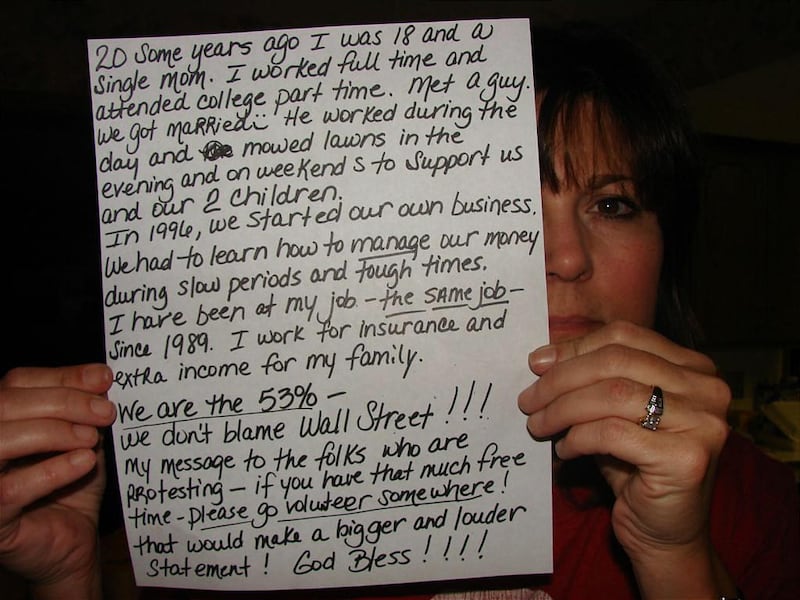 20 Some years ago I was 18 and a
Single mom. I worked full time and
attended college part time. Met a guy.
We got maRRied. He worked during the
day and mowed lawns in the
evening and on weekends to Support us
and our 2 children.
In 1996, we started our own business.
We had to learn how to manage our money
during slow periods and tough times.
I have been at my job - the SAME job -
Since 1989. I work for insurance and
extra income for my family.
We are the 53% -
we don't blame Wall Street!!!
My message to the folks who are
PRotesting - if you have that much free
time - please go voluteer somewhere!
that would make a bigger and louder
Statement! God Bless!!!!